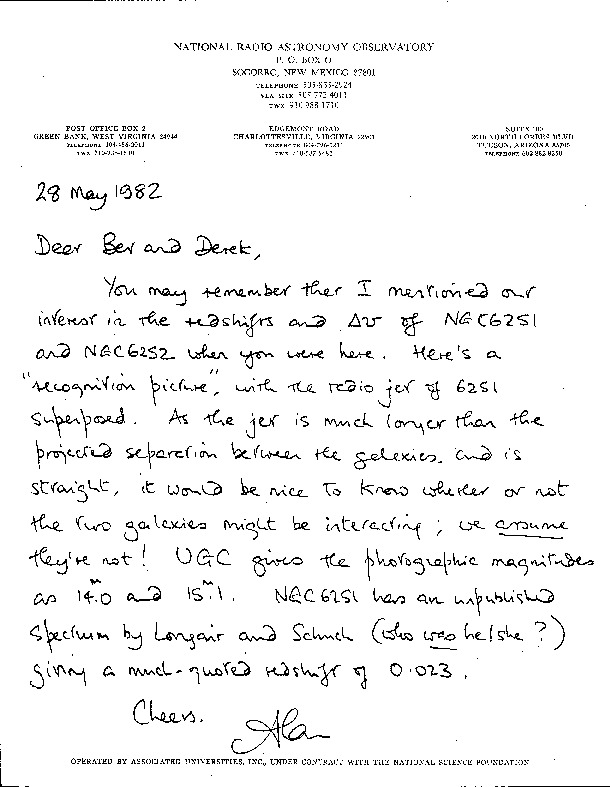 NATIONAL RADIO ASTRONOMY OBSERVATORY
P. O. BOX O
SOCORRO, NEW MEXICO 87801
TELEPHONE
VIA SITE
TWX
POST OFFICE BOX 2
GREEN BANK, WEST VIRGINIA 24944
TELEPHONE
TWX
EDGEMONT ROAD
CHARLOTTESVILLE, VIRGINIA 22901
TELEPHONE
TWX
SUITE 100
2010 NORTH FORBES BLVD
TUCSON, ARIZONA
TELEPHONE 602-882-8250
28 May 1982
Dear Bev and Derek,
You may remember that I mentioned our
interest in the redshifts and Δv of NGC6251
and NGC6252 when you were here. Here's a
"recognition picture", with the radio jet of 6251
superposed. As the jet is much longer than the
projected separation between the galaxies, and is
straight, it would be nice to know whether or not
the two galaxies might be interacting; we assume
they're not! UGC gives the photographic magnitudes
as 14.ᵐ0 and 15.ᵐ1. NGC6251 has an unpublished
spectrum by Longair and (who was he/she?)
giving a much-quoted redshift of 0.023.
Cheers.
Alan
OPERATED BY ASSOCIATED UNIVERSITIES, INC., UNDER CONTRACT WITH THE NATIONAL SCIENCE FOUNDATION